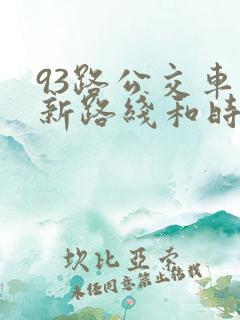 93路公交车
新路线和时
坎比亚索
未经同意禁止转载